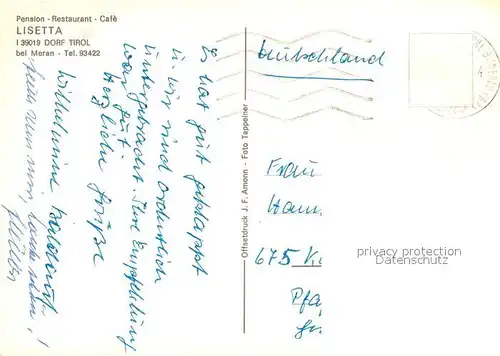 Pension - Restaurant - Cafè
LISETTA
I 39019 DORF TIROL
bei Meran - Tel. 93422
Es hat gut geklappt
u. wir sind ordentlich
untergebracht. Ihre Empfehlung
war gut.
Herzliche Grüße
Wilhelmine
Offsetdruck J. F. Amonn - Foto Tappeiner
Deutschland
Frau
Hann
675 K
Pfa
privacy protection
Datenschutz